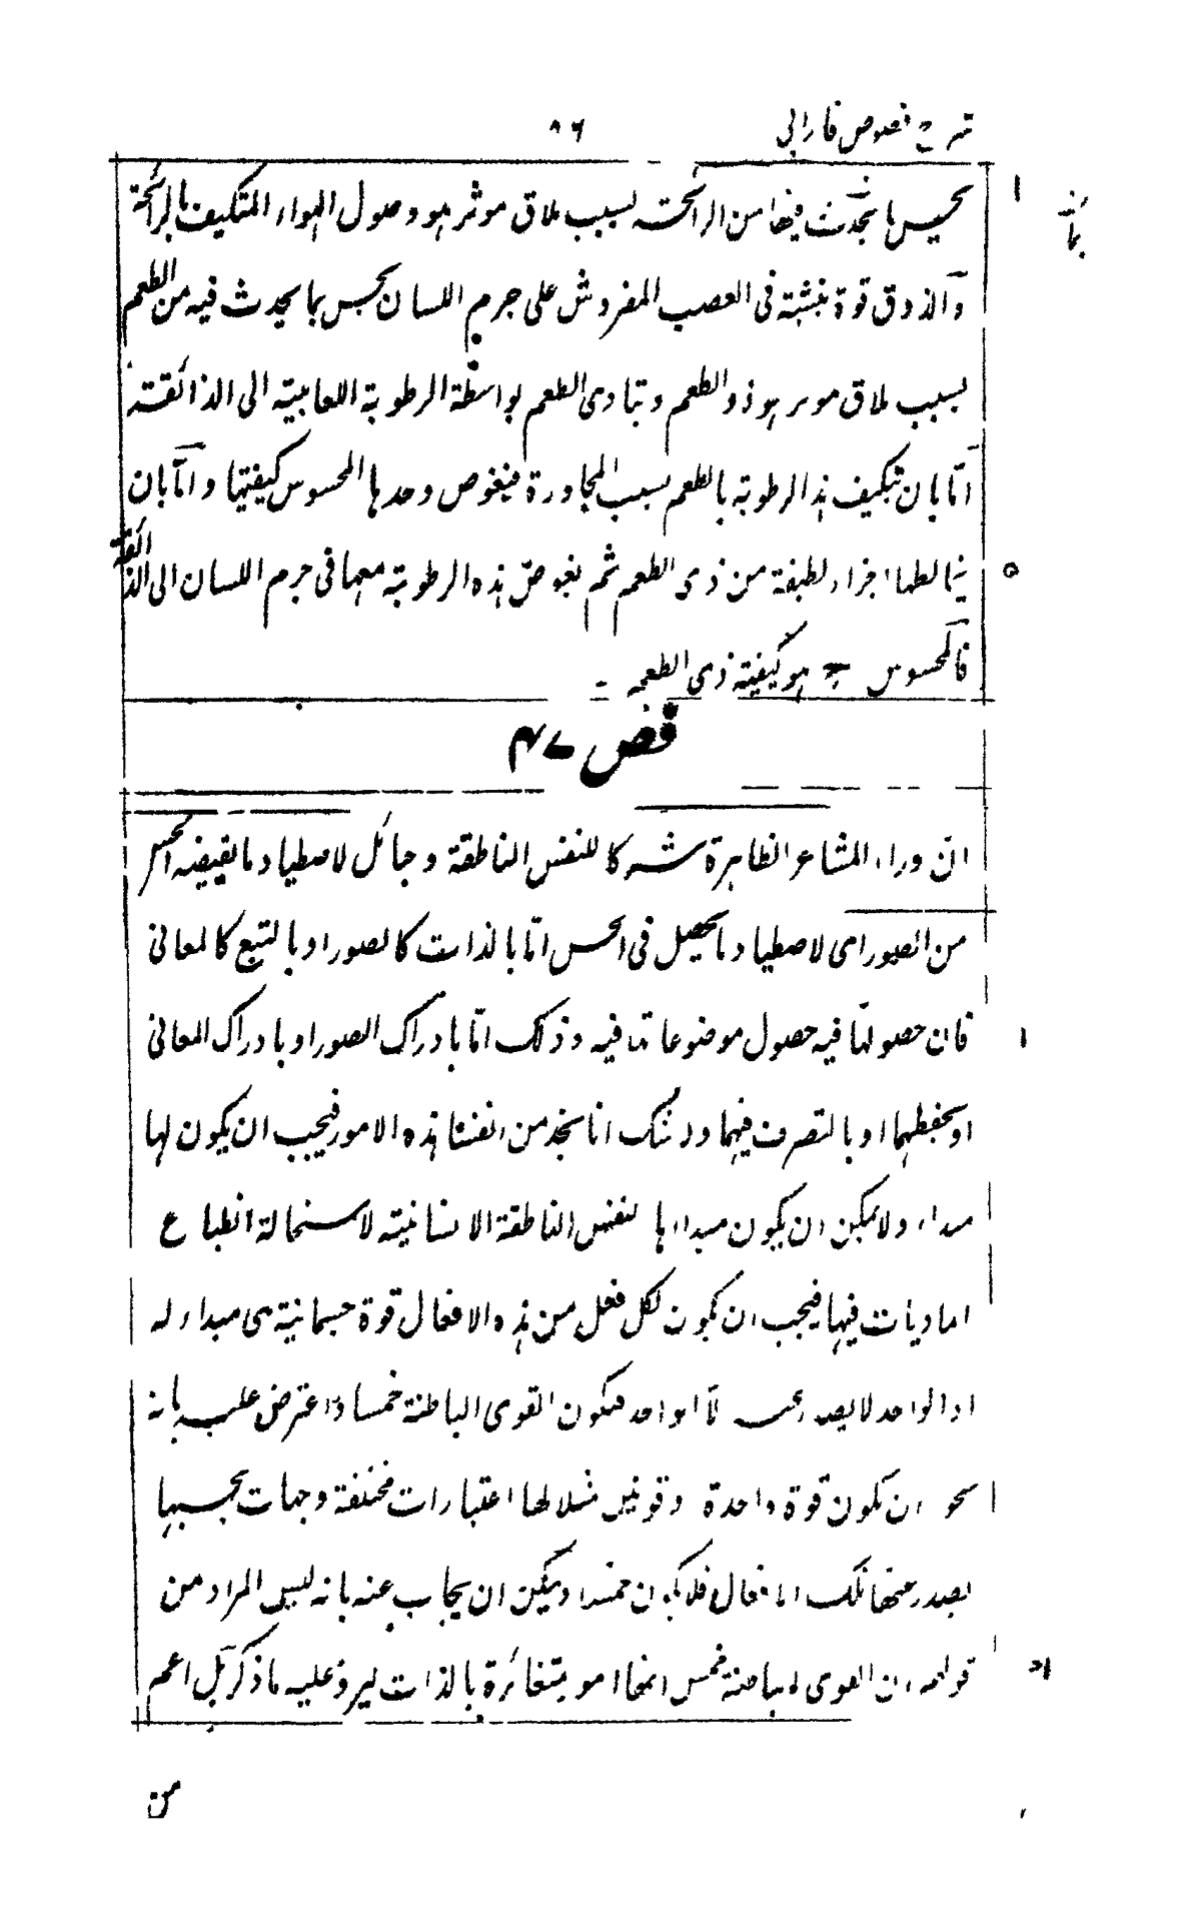 شرح فصوص فارابی ٨٦
يحس بما يحدث فيها من الرائحة بسبب ملاق موثر هو وصول الهواء المتكيف بالرائحة
والذوق قوة منبثة فى العصب المفروش على جرم اللسان يحس بما يحدث فيه من الطعم
بسبب ملاق موثر هو ذو الطعم ويتادى الطعم بواسطة الرطوبة اللعابية الى الذائقة
اما بان تتكيف هذه الرطوبة بالطعم بسبب المجاورة فيغوص وحدها المحسوس كيفيتها واما بان
يخالطها اجزاء لطيفة من ذى الطعم ثم يغوص هذه الرطوبة معها فى جرم اللسان الى الذائقة
فالمحسوس ح هو كيفية ذى الطعم -
فص ٤٧
ان وراء المشاعر الظاهرة شركا للنفس الناطقة وحبائل لاصطياد ما يقيضه الحس
من الصور اى لاصطياد ما يحصل فى الحس اما بالذات كالصور او بالتبع كالمعانى
فان حصولها فيه حصول موضوعاتها فيه وذلك اما بادراك الصور او بادراك المعانى
او بحفظهما او بالتصرف فيهما وذلك انا نجد من انفسنا هذه الامور فيجب ان يكون لها
مبداء ولا يمكن ان يكون مبداءها النفس الناطقة الانسانية لاستحالة انطباع
الماديات فيها فيجب ان يكون لكل فعل من هذه الافعال قوة جسمانية هى مبداء له
اذ الواحد لا يصدر عنه الا واحد فيكون القوى الباطنة خمسا واعترض عليه بانه
يجوز ان يكون قوة واحدة وقوتين مثلا لها اعتبارات مختلفة وجهات بحسبها
يصدر عنها تلك الافعال فلا يكون خمسا ويمكن ان يجاب عنه بانه ليس المراد من
قولهم ان القوى الباطنة خمس انها امور متغائرة بالذات ليرد عليه ما ذكر بل اعم
من